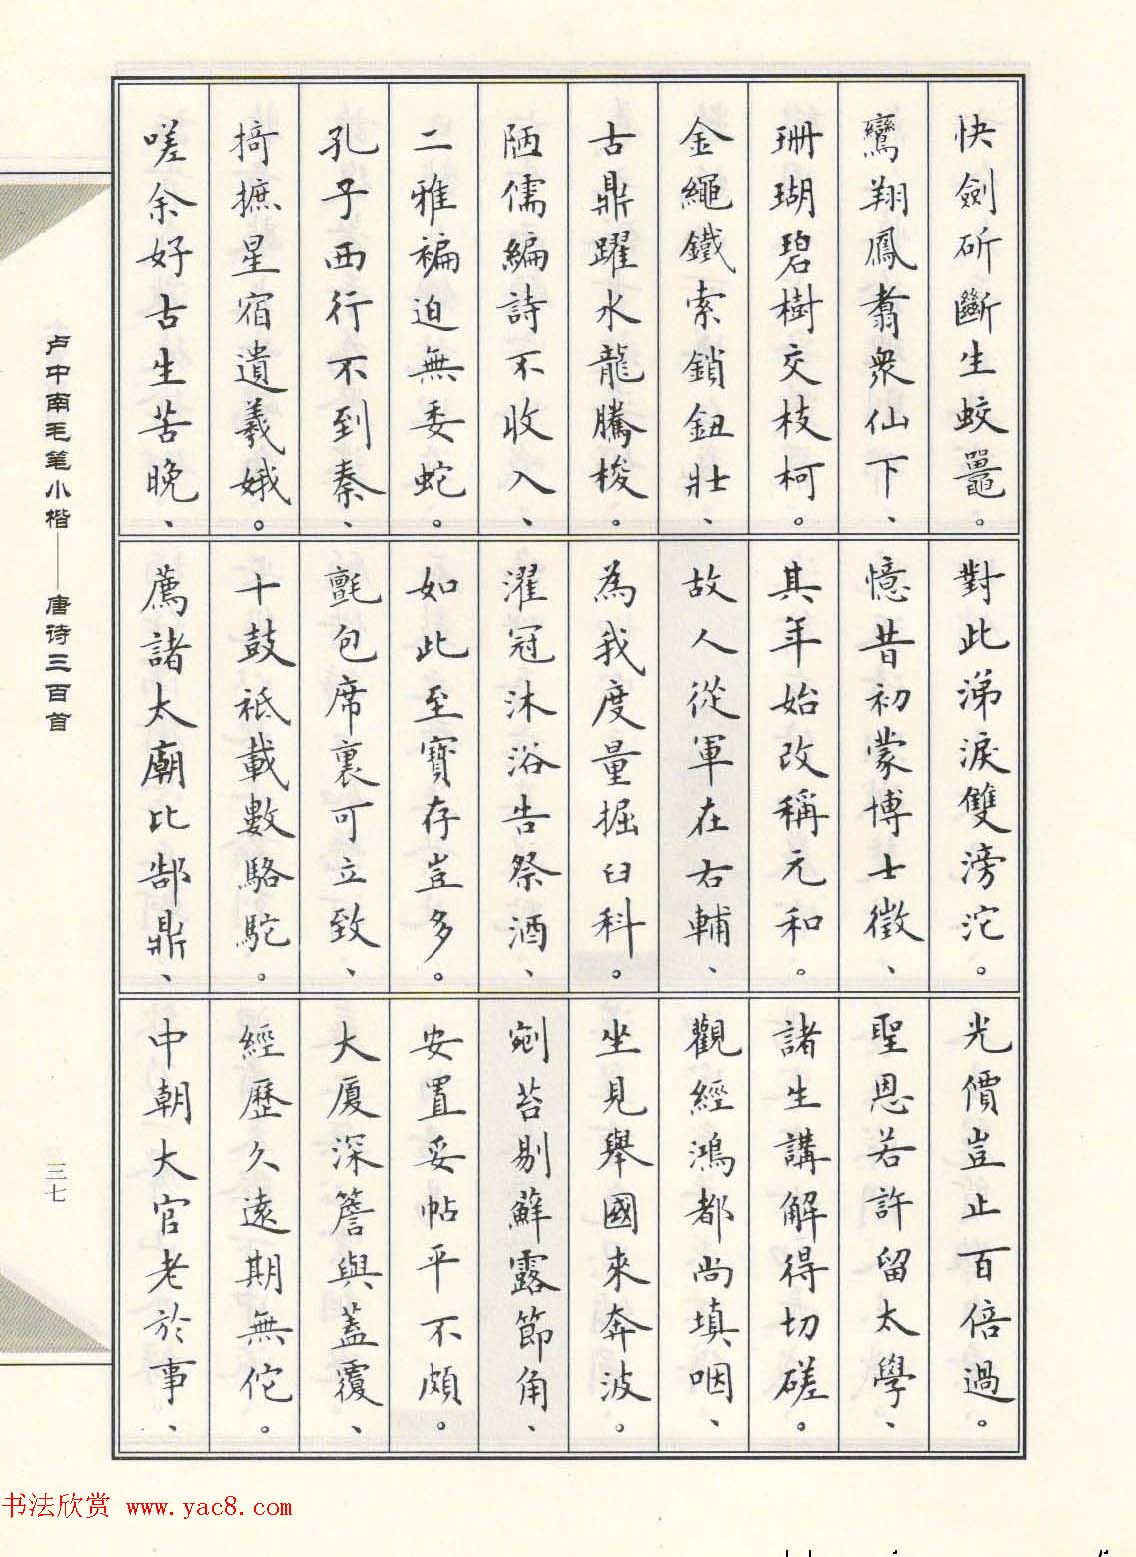 快劍斫斷生蛟鼉。
鸞翔鳳翥眾仙下、
珊瑚碧樹交枝柯。
金繩鐵索鎖鈕壯、
古鼎躍水龍騰梭。
陋儒編詩不收入、
二雅褊迫無委蛇。
孔子西行不到秦、
掎摭星宿遺羲娥。
嗟余好古生苦晚、
對此涕淚雙滂沱。
憶昔初蒙博士徵、
其年始改稱元和。
故人從軍在右輔、
為我度量掘臼科。
濯冠沐浴告祭酒、
如此至寶存豈多。
氈包席裹可立致、
十鼓祇載數駱駝。
薦諸太廟比郜鼎、
光價豈止百倍過。
聖恩若許留太學、
諸生講解得切磋。
觀經鴻都尚填咽、
坐見舉國來奔波。
剜苔剔蘚露節角、
安置妥帖平不頗。
大廈深簷與蓋覆、
經歷久遠期無佗。
中朝大官老於事、
卢中南毛笔小楷——唐诗三百首
三七
书法欣赏 www.yac8.com